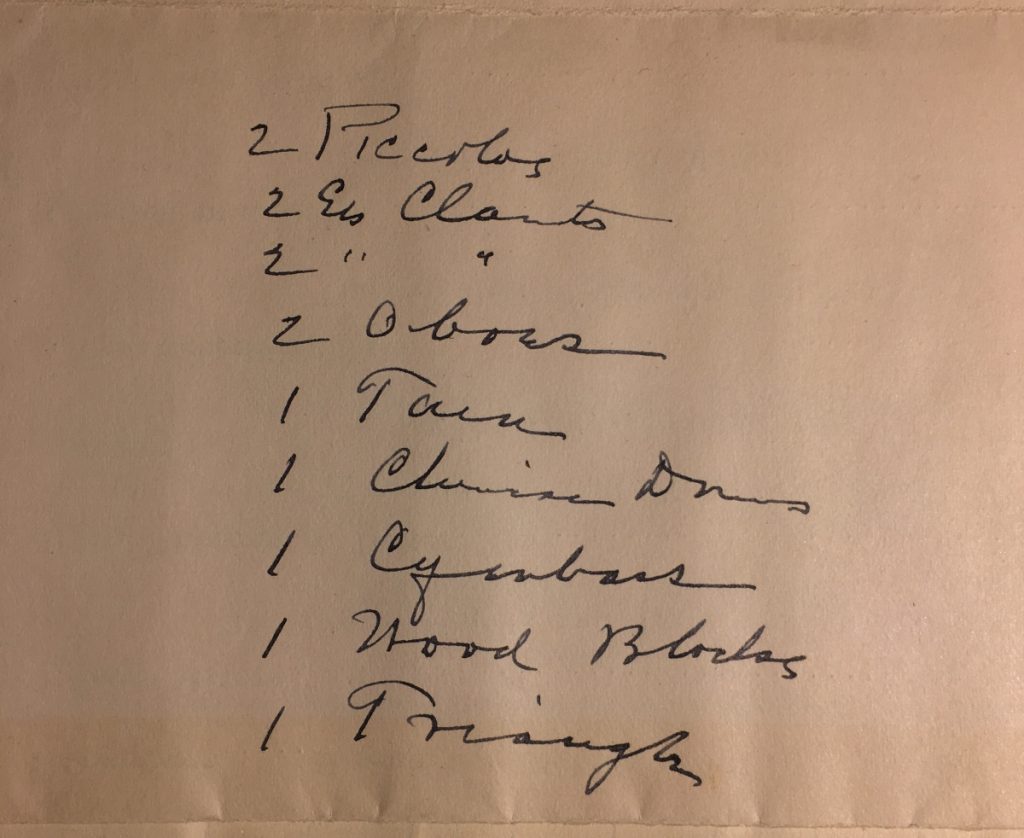 2 Piccolos
2 Eb Clarnts
2 " "
2 Oboes
1 Tam
1 Chinese Drum
1 Cymbals
1 Wood Blocks
1 Triangle